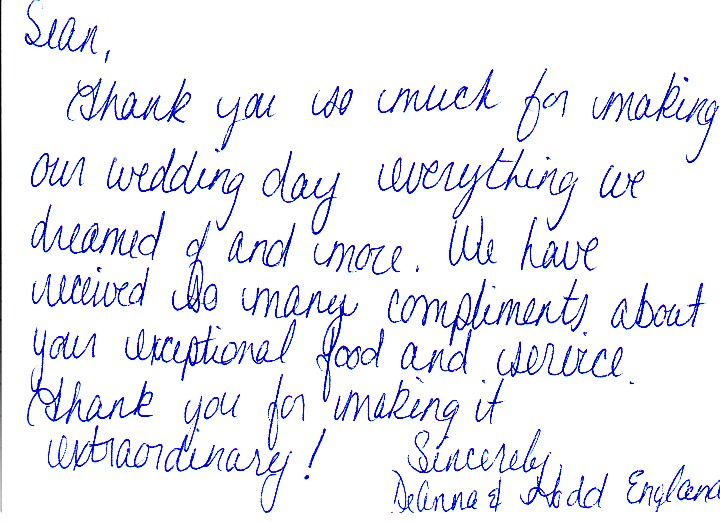 Sean,
Thank you so much for making
our wedding day everything we
dreamed of and more. We have
received so many compliments about
your exceptional food and service.
Thank you for making it
extraordinary!
Sincerely,
DeAnna & Todd England